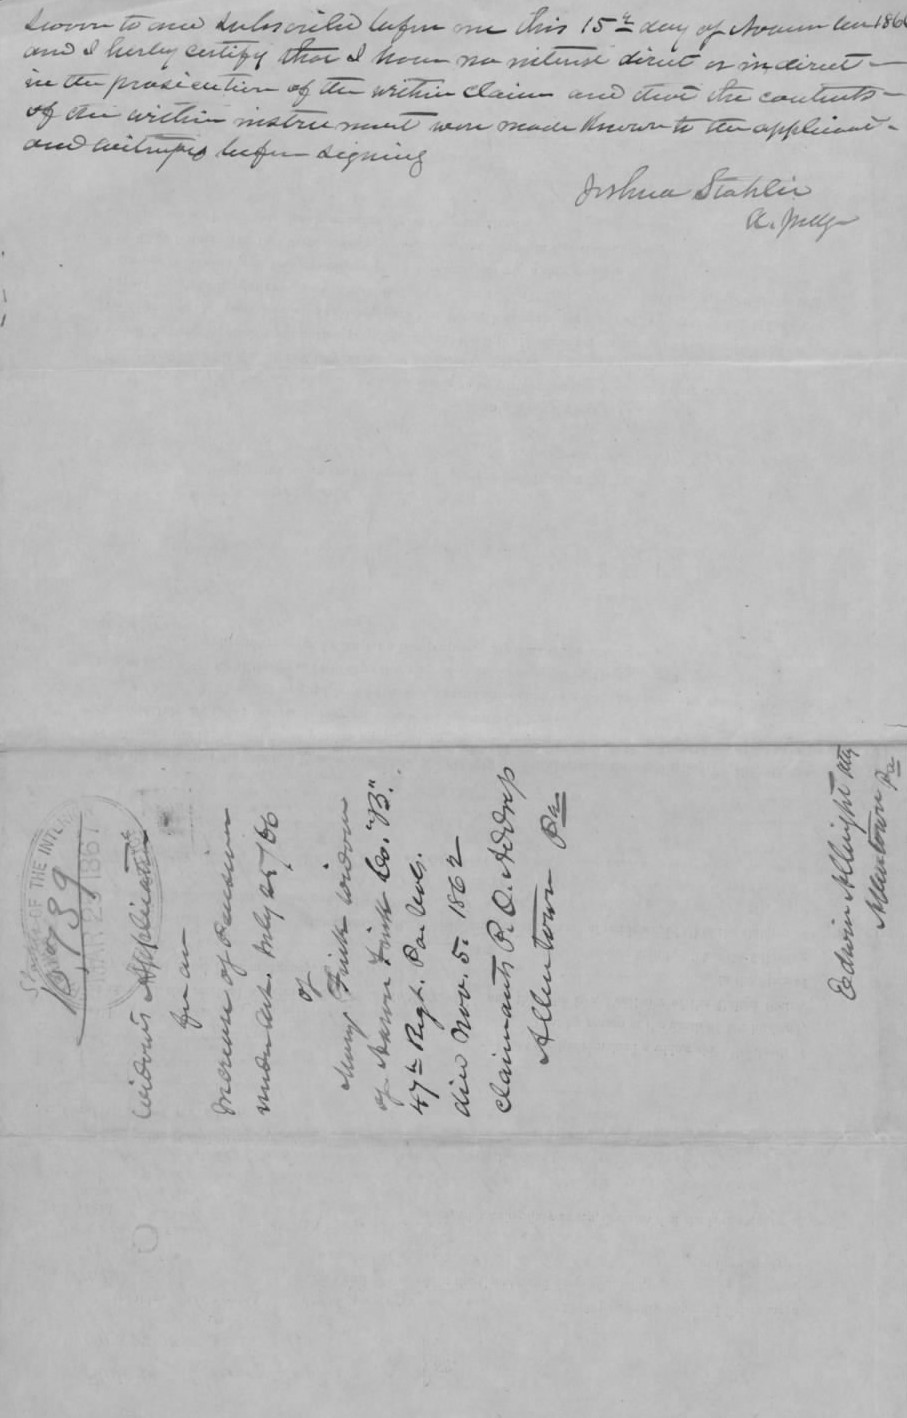 Sworn to and Subscribed before me this 15th day of November 186
and I herby certify that I have no interest direct or indirect
in the prosecution of the within claim and that the contents
of the within instrument were made known to the applicant
and witnesses before signing
Joshua Stahler
A. Judge
OF THE INTE
1867
Widow's Application
for an
Increase of Pension
under Act. July 25/66
of
Mary Fink widow
of Aaron Fink Co. "B".
47th Regt. Pa. Vols.
died Nov. 5. 1862
Claimants P.O. Address
Allentown Pa
Edwin Albright Atty
Allentown Pa